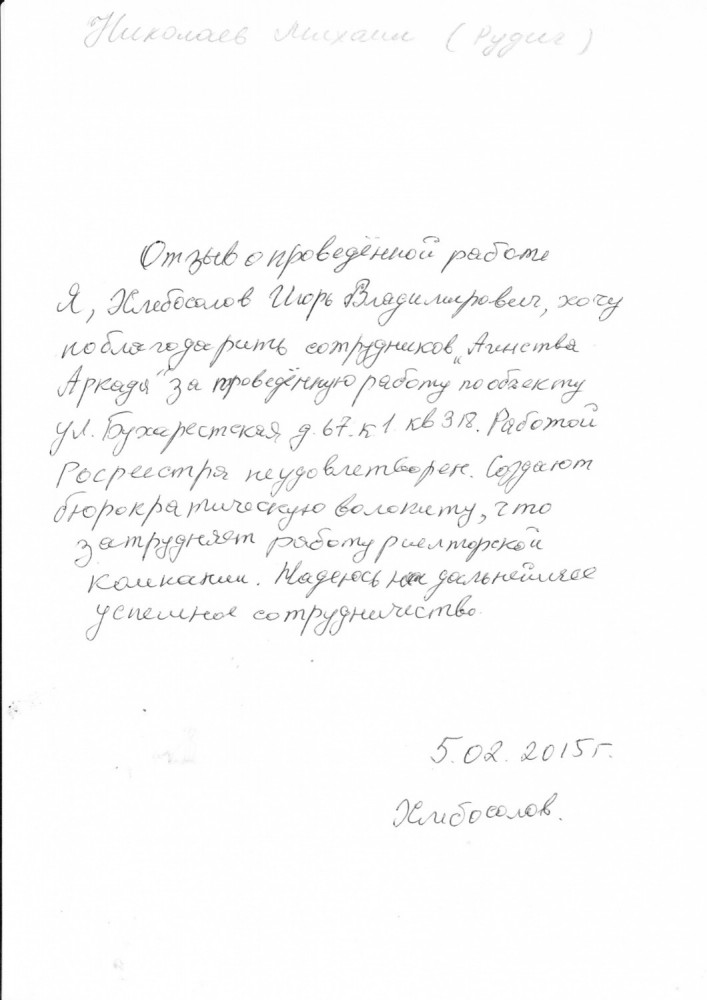 Николаев Михаил (Рудиг)
Отзыв о проведённой работе
Я, Хлебосолов Игорь Владимирович, хочу
поблагодарить сотрудников „Агенства
Аркада" за проведённую работу по объекту
ул. Бухарестская д. 67. к 1. кв 318. Работой
Росреестра неудовлетворен. Создают
бюрократическую волокиту, что
затрудняет работу риелторской
компании. Надеюсь на дальнейшее
успешное сотрудничество.
5.02.2015г.
Хлебосолов.